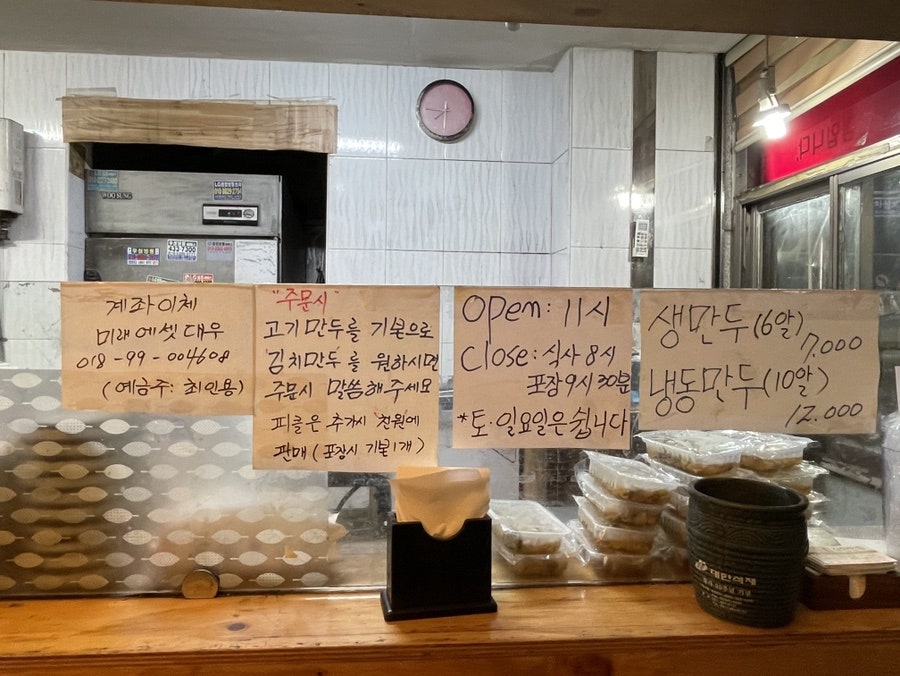 계좌이체
미래에셋대우
018-99-004608
(예금주: 최인용)
"주문시"
고기만두를 기본으로
'김치만두'를 원하시면
주문시 말씀해주세요
피클은 추가시 천원에
판매 (포장시 기본1개)
Open: 11시
Close: 식사 8시
포장 9시 30분
*토·일요일은 쉽니다
생만두(6알)
7,000
냉동만두(10알)
12.000
WOO SUNG
433-7300
대한식재